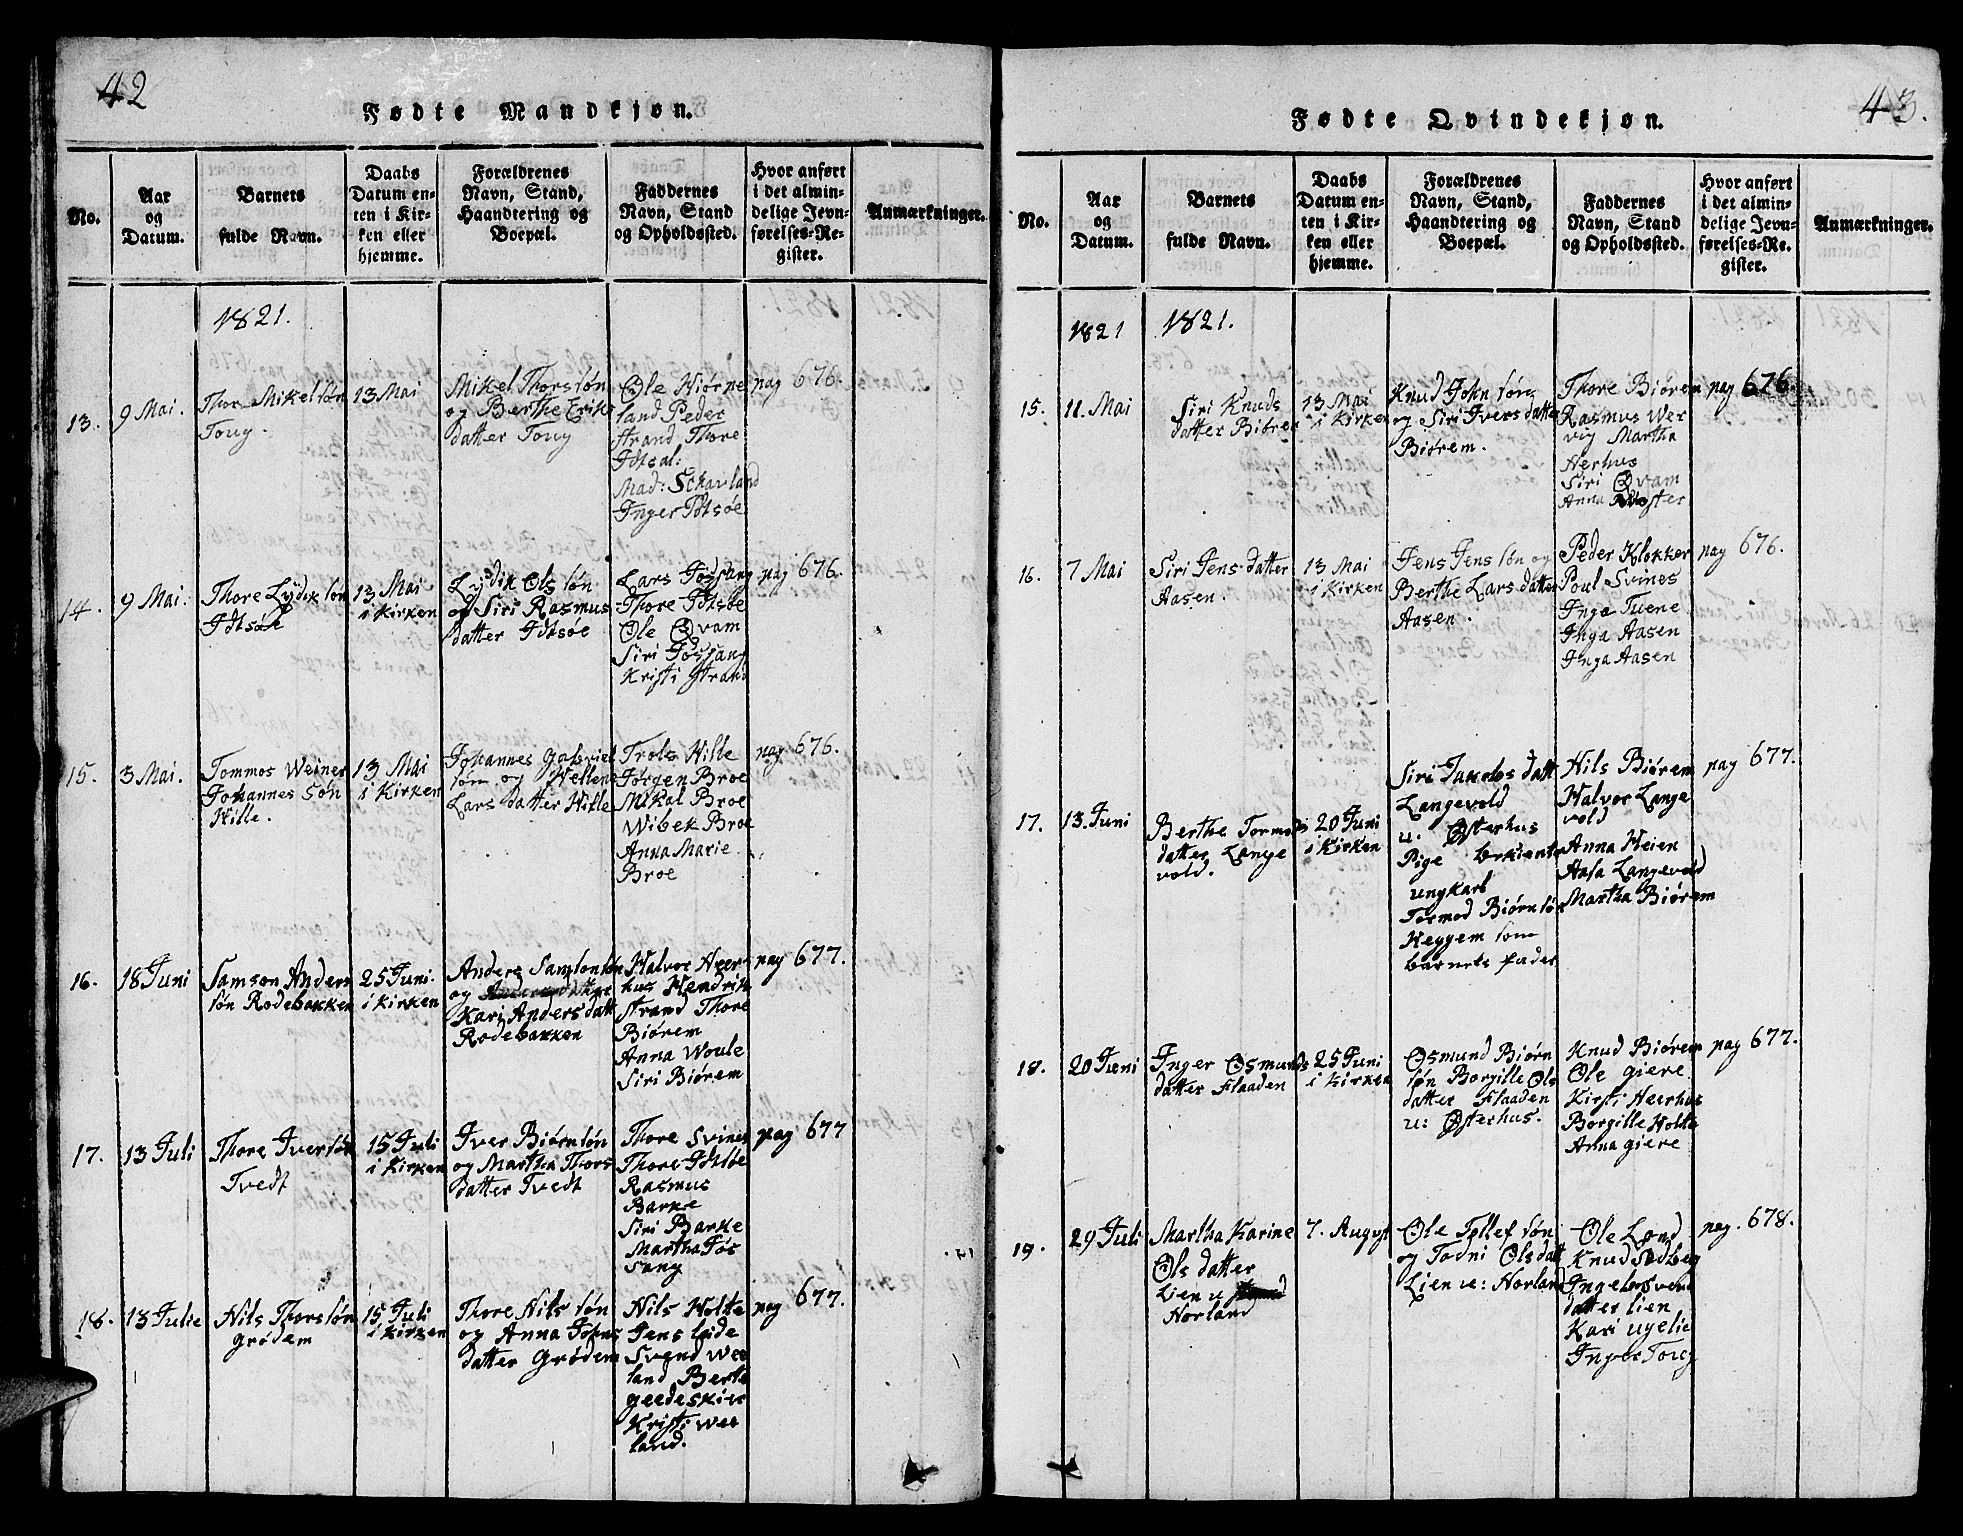 42
Fødte Mandkjøn.
No.
Aar
og
Datum.
Barnets
fulde Navn.
Daabs
Datum en-
ten i Kir-
ken eller
hjemme.
Forældrenes
Navn, Stand,
Haandtering og
Boepæl.
Faddernes
Navn, Stand
og Opholdssted.
Hvor anført
i det almin-
delige Jevn-
førelses-Re-
gister.
Anmærkninger.
1821.
13.
9 Mai.
Thor Mikelsøn
Toug.
13 Mai
Mikel Thorssøn
og Berthe Eriks
datter Toug
Ole Hiørpe
land Peder
strand Thore
Idtsal:
Mad: Schavland
Inger Idtsøe
pag 676.
14.
9 Mai.
Thore Lydik søn
Idtsøe
13 Mai
i Kirken
Lydik Ols søn
og Siri Rasmus
datter Idtsøe
Lars Fossang
Thore Idtsøe
Ole Qvam
Siri Fossang
Kristi Strand
pag 676.
15.
3 Mai.
Tommos Weiner
Johannes søn
Hille.
13 Mai
i Kirken
Johannes Gabriel
søn og Hellene
Lars datter Hille
Trols Hille
Jørgen Broe
Mikal Broe
Wibek Broe
Anna Marie
Broe
pag 676.
16.
18 Juni
Samson Anders
søn Rodebakken
25 Juni.
i Kirken
Anders Samsonsøn
og
Kari Anders datt
Rodebakken
Halvor Heer-
hus Hendrik
strand Thore
Biørem
Anna Woule
Siri Biørem
pag 677.
17.
13 Juli
Thore Iversøn
Tvedt
15 Juli
i Kirken
Iver Biørnsøn
og Martha Thors
datter Tvedt
Thore Svines
Thore Idtsøe
Rasmus
Barke
Siri Barke
Martha Fos
sang
pag 677
18.
13 Julie
Nils Thorssøn
Grødem
15 Juli
i Kirken
Thore Nils søn
og Anna Johns
datter Grødem
Nils Holte
Jens Leide
Svend Wee
land Berte
geedeskier
Kristi Wee
land.
pag 677.
43.
Fødte Qvindekjøn.
No.
Aar
og
Datum.
Barnets
fulde Navn.
Daabs
Datum en-
ten i Kir-
ken eller
hjemme.
Forældrenes
Navn, Stand,
Haandtering og
Boepæl.
Faddernes
Navn, Stand
og Opholdssted.
Hvor anført
i det almin-
delige Jevn-
førelses-Re-
gister.
Anmærkninger.
1821
1821.
15.
11. Mai
Siri Knuds
datter Biørem
13 Mai
i Kirken
Knud John søn
og Siri Ivers datter
Biørem.
Thore Biørem
Rasmus Wer
vig Martha
Nerhus
Siri Qvam
Anna
pag 676.
16.
7 Mai
Siri Jens datter
Aasen.
13 Mai
i Kirken
Jens Jens søn og
Berthe Lars datter
Aasen.
Peder Klokker
Poul Svines
Inga Tuene
Inga Aasen
Inga Aasen
pag 676.
17.
13. Juni
Berthe Tormods
datter Lange
vold.
20 Juni
i Kirken
Siri Jakobs datt
Langevold
u. Østerhus
Pige bekiente
ungkarl
Tormod Biørnsøn
Heggem som
barnets fader
Nils Biørem
Halvor Lange
vold
Anna Heien
Aasa Langevold
Martha Biørem
pag 677.
18.
20 Juni
Inger Osmunds
datter Flaaden
25 Juni
i Kirken
Osmund Biørn
søn Borgille Ols
datter Flaaden
u: Østerhus.
Knud Biørem
Ole giere
Kirsti Heerhus
Borgille Holta
Anna giere
pag 677.
19.
29 Juli
Martha Karine
Ols datter
Lien u
Norland
7. August
Ole Tollef søn
og Todni Olsdatt
Lien u: Norland
Ole Land
Knud Sedberg
Ingebor Svend
datter lien
Kari ugelie
Inger Toug
pag. 678.